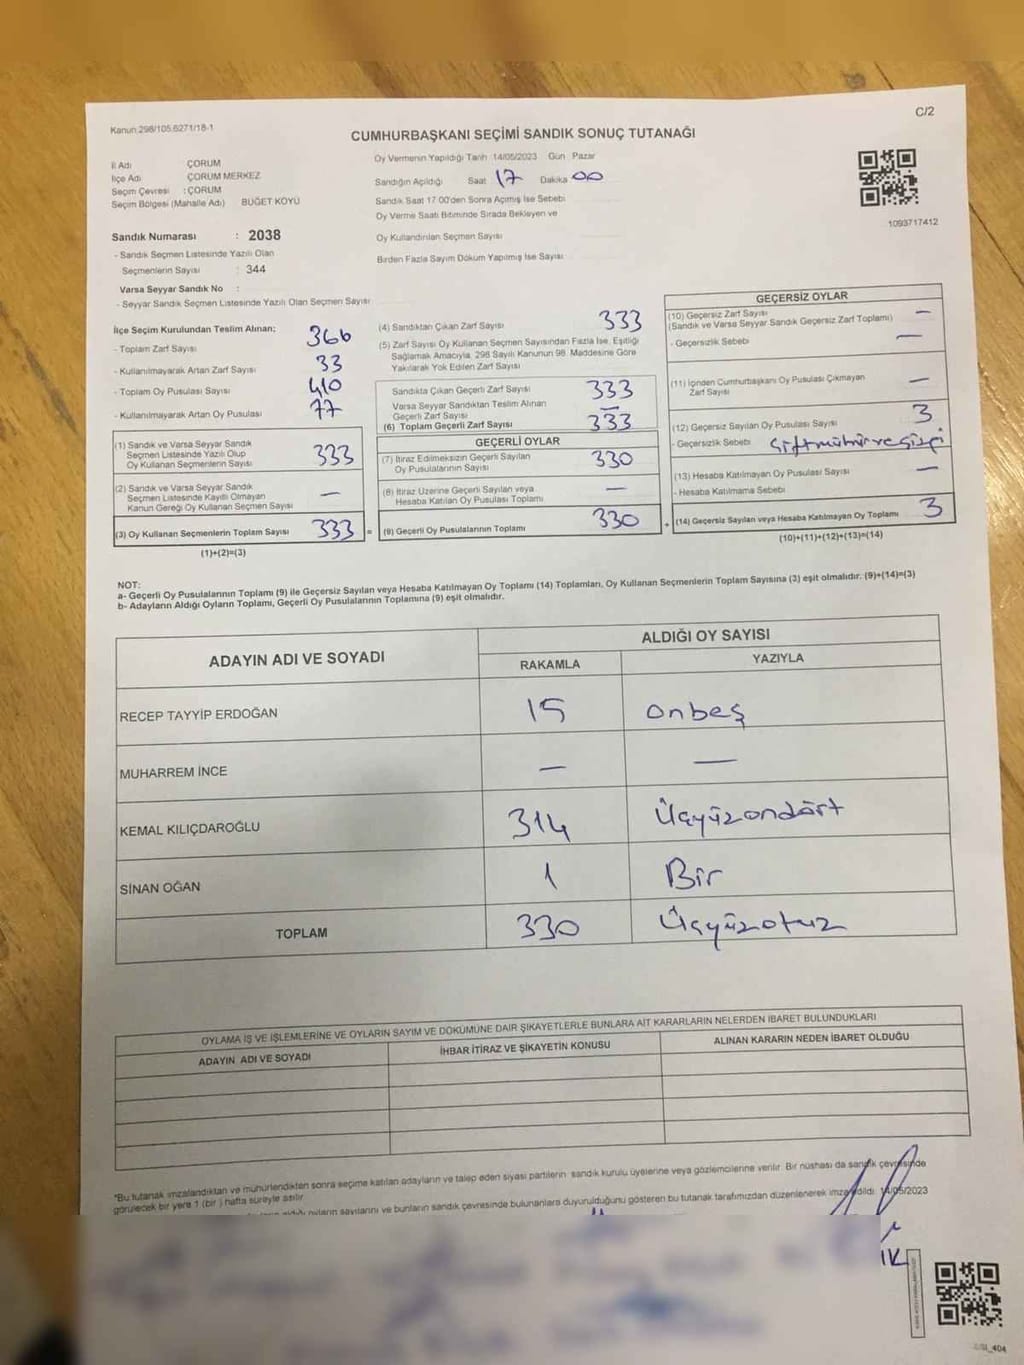 C/2
Kanun 298/105,6271/18-1
CUMHURBAŞKANI SEÇİMİ SANDIK SONUÇ TUTANAĞI
İl Adı ÇORUM
İlçe Adı ÇORUM MERKEZ
Seçim Çevresi : ÇORUM
Seçim Bölgesi (Mahalle Adı) BUĞET KÖYÜ
Oy Vermenin Yapıldığı Tarih 14/05/2023 Gün Pazar
Sandığın Açıldığı Saat 17 Dakika 00
Sandık Saat 17.00'den Sonra Açımış İse Sebebi
Oy Verme Saati Bitiminde Sırada Bekleyen ve
Oy Kullandırılan Seçmen Sayısı
Birden Fazla Sayım Döküm Yapılmış İse Sayısı
1093717412
Sandık Numarası : 2038
- Sandık Seçmen Listesinde Yazılı Olan
Seçmenlerin Sayısı : 344
Varsa Seyyar Sandık No :
- Seyyar Sandık Seçmen Listesinde Yazılı Olan Seçmen Sayısı
İlçe Seçim Kurulundan Teslim Alınan;
- Toplam Zarf Sayısı 366
- Kullanılmayarak Artan Zarf Sayısı 33
- Toplam Oy Pusulası Sayısı 410
- Kullanılmayarak Artan Oy Pusulası 77
(1) Sandık ve Varsa Seyyar Sandık
Seçmen Listesinde Yazılı Olup
Oy Kullanan Seçmenlerin Sayısı 333
(2) Sandık ve Varsa Seyyar Sandık
Seçmen Listesinde Kayıtlı Olmayan
Kanun Gereği Oy Kullanan Seçmen Sayısı —
(3) Oy Kullanan Seçmenlerin Toplam Sayısı 333 =
(1)+(2)=(3)
(4) Sandıktan Çıkan Zarf Sayısı 333
(5) Zarf Sayısı Oy Kullanan Seçmen Sayısından Fazla İse, Eşitliği
Sağlamak Amacıyla, 298 Sayılı Kanunun 98. Maddesine Göre
Yakılarak Yok Edilen Zarf Sayısı
Sandıkta Çıkan Geçerli Zarf Sayısı 333
Varsa Seyyar Sandıktan Teslim Alınan
Geçerli Zarf Sayısı —
(6) Toplam Geçerli Zarf Sayısı 333
GEÇERLİ OYLAR
(7) İtiraz Edilmeksizin Geçerli Sayılan
Oy Pusulalarının Sayısı 330
(8) İtiraz Üzerine Geçerli Sayılan veya
Hesaba Katılan Oy Pusulası Toplamı —
(9) Geçerli Oy Pusulalarının Toplamı 330 +
GEÇERSİZ OYLAR
(10) Geçersiz Zarf Sayısı —
(Sandık ve Varsa Seyyar Sandık Geçersiz Zarf Toplamı)
- Geçersizlik Sebebi —
(11) İçinden Cumhurbaşkanı Oy Pusulası Çıkmayan
Zarf Sayısı —
(12) Geçersiz Sayılan Oy Pusulası Sayısı 3
- Geçersizlik Sebebi
(13) Hesaba Katılmayan Oy Pusulası Sayısı —
- Hesaba Katılmama Sebebi
(14) Geçersiz Sayılan veya Hesaba Katılmayan Oy Toplamı 3
(10)+(11)+(12)+(13)=(14)
NOT:
a- Geçerli Oy Pusulalarının Toplamı (9) ile Geçersiz Sayılan veya Hesaba Katılmayan Oy Toplamı (14) Toplamları, Oy Kullanan Seçmenlerin Toplam Sayısına (3) eşit olmalıdır. (9)+(14)=(3)
b- Adayların Aldığı Oyların Toplamı, Geçerli Oy Pusulalarının Toplamına (9) eşit olmalıdır.
ADAYIN ADI VE SOYADI ALDIĞI OY SAYISI
RAKAMLA YAZIYLA
RECEP TAYYİP ERDOĞAN 15 onbeş
MUHARREM İNCE — —
KEMAL KILIÇDAROĞLU 314 Üçyüzondört
SİNAN OĞAN 1 Bir
TOPLAM 330 Üçyüzotuz
OYLAMA İŞ VE İŞLEMLERİNE VE OYLARIN SAYIM VE DÖKÜMÜNE DAİR ŞİKAYETLERLE BUNLARA AİT KARARLARIN NELERDEN İBARET BULUNDUKLARI
ADAYIN ADI VE SOYADI İHBAR İTİRAZ VE ŞİKAYETİN KONUSU ALINAN KARARIN NEDEN İBARET OLDUĞU
*Bu tutanak imzalandıktan ve mühürlendikten sonra seçime katılan adayların ve talep eden siyasi partilerin sandık kurulu üyelerine veya gözlemcilerine verilir. Bir nüshası da sandık çevresinde
görülecek bir yere 1 (bir) hafta süreyle asılır.
oyların sayılarını ve bunların sandık çevresinde bulunanlara duyurulduğunu gösteren bu tutanak tarafımızdan düzenlenerek imza edildi. 14/05/2023